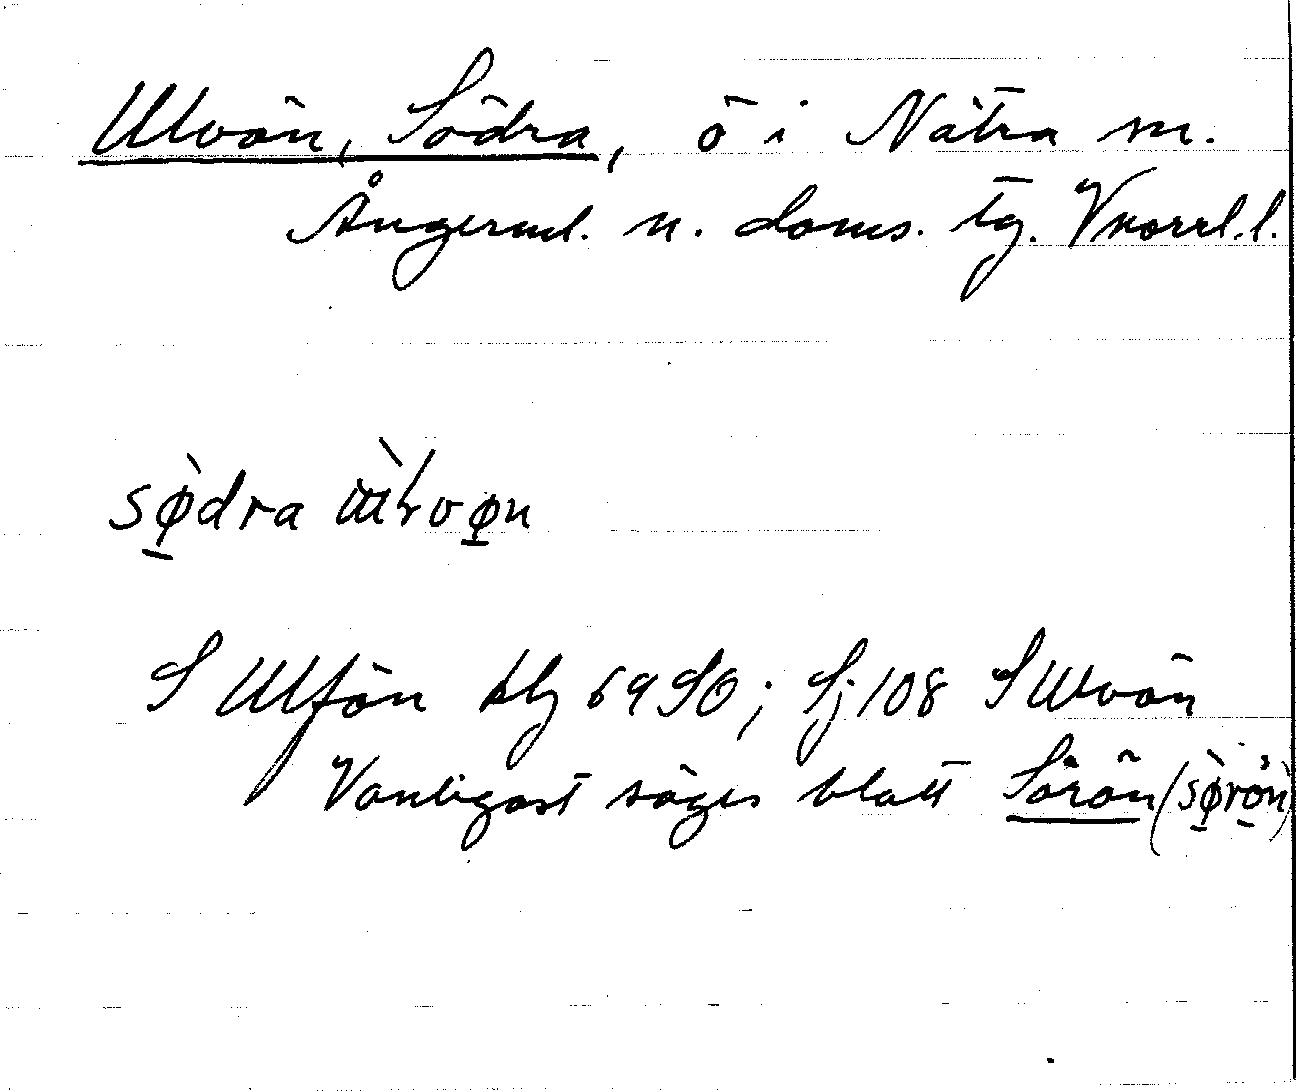 Ulvön, Södra, ö i Nätra sn.
Ångerml. n. doms. tg. Vnorrl. l.
sø̀dra ɯ̀lvøn
S Ulfön blj 69 SO; Sj 108 S Ulvön
Vanligast säges blott Sörön (sø̀røn)